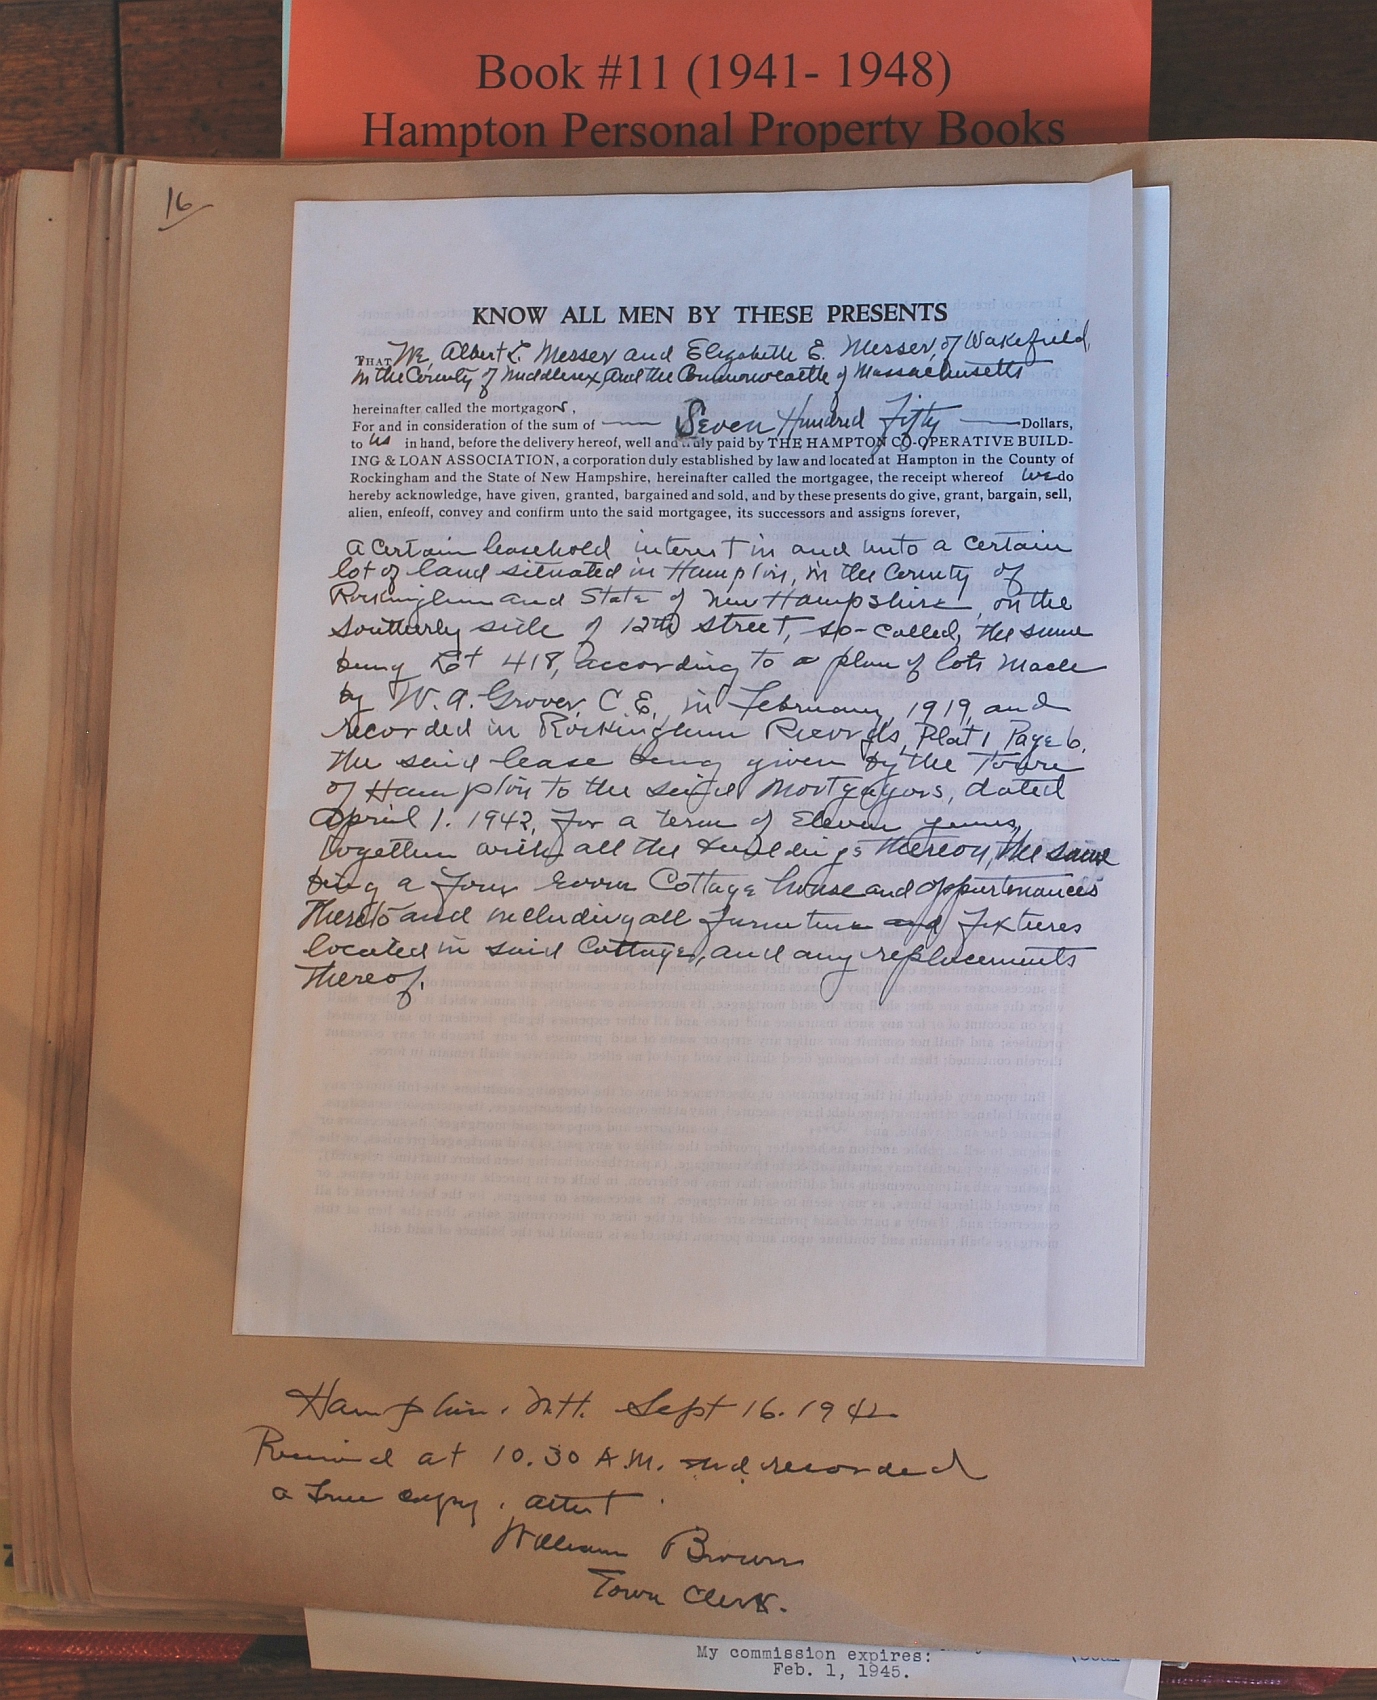 Book #11 (1941- 1948)
Hampton Personal Property Books
16
KNOW ALL MEN BY THESE PRESENTS
THAT We, Albert L. Messer and Elizabeth E. Messer, of Wakefield,
in the County of Middlesex, and the Commonwealth of Massachusetts
hereinafter called the mortgagors,
For and in consideration of the sum of Seven Hundred Fifty Dollars,
to us in hand, before the delivery hereof, well and truly paid by THE HAMPTON CO-OPERATIVE BUILD-
ING & LOAN ASSOCIATION, a corporation duly established by law and located at Hampton in the County of
Rockingham and the State of New Hampshire, hereinafter called the mortgagee, the receipt whereof we do
hereby acknowledge, have given, granted, bargained and sold, and by these presents do give, grant, bargain, sell,
alien, enfeoff, convey and confirm unto the said mortgagee, its successors and assigns forever,
a certain leasehold interest in and unto a certain
lot of land situated in Hampton, in the County of
Rockingham and State of New Hampshire, on the
Southerly side of 12th Street, so-called, the same
being Lot 418, according to a plan of lots made
by W. A. Grover, C. E., in February, 1919, and
recorded in Rockingham Records, Plat 1 Page 6,
the said lease being given by the Town
of Hampton to the said Mortgagors, dated
April 1. 1942, for a term of Eleven years,
together with all the buildings thereon, the same
being a four room Cottage house and appurtenances
thereto and including all furniture and fixtures
located in said Cottage, and any replacements
thereof.
Hampton. N.H. Sept 16. 1942
Received at 10.30 A.M. and recorded
a true copy. attest.
William Brown
Town Clerk.
My commission expires:
Feb. 1, 1945.